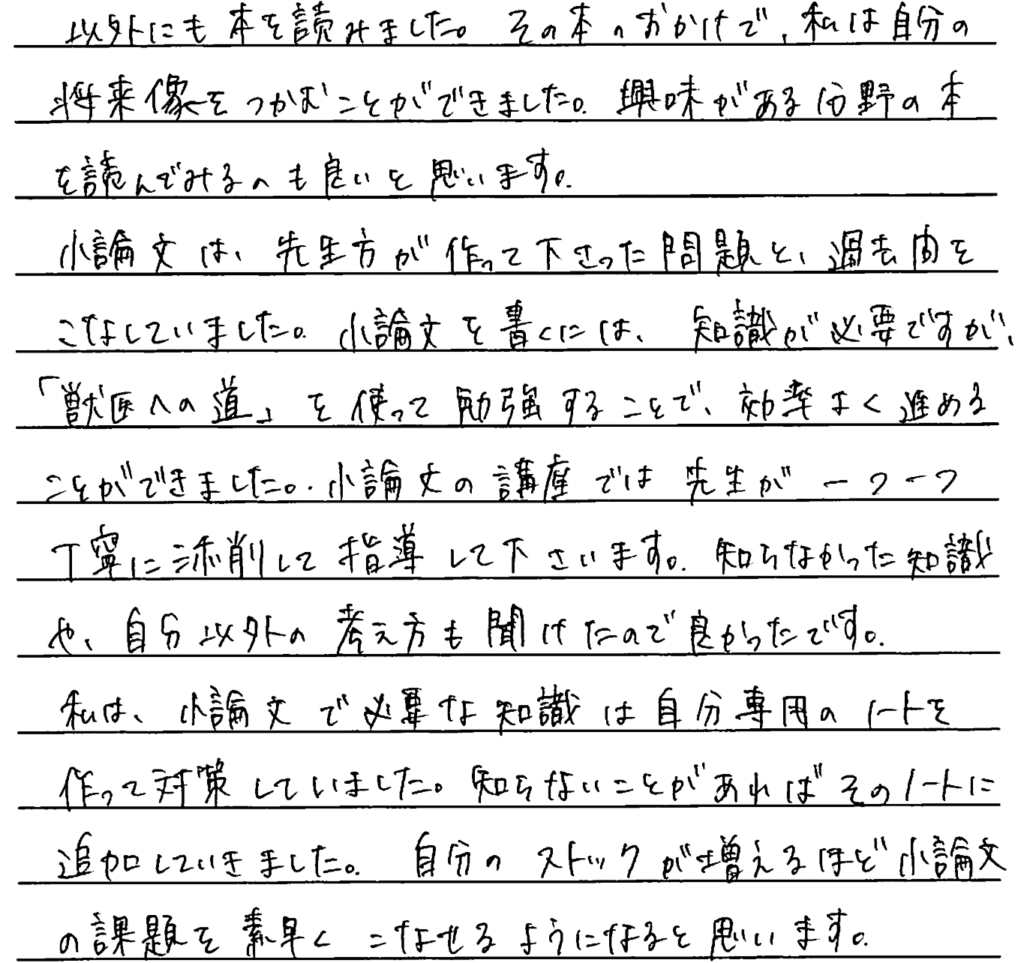 以外にも本を読みました。その本のおかげで、私は自分の
将来像をつかむことができました。興味がある分野の本
を読んでみるのも良いと思います。
小論文は、先生方が作って下さった問題と、過去問を
こなしていました。小論文を書くには、知識が必要ですが、
「獣医への道」を使って勉強することで、効率よく進める
ことができました。小論文の講座では先生が一つ一つ
丁寧に添削して指導して下さいます。知らなかった知識
や、自分以外の考え方も聞けたので良かったです。
私は、小論文で必要な知識は自分専用のノートを
作って対策していました。知らないことがあればそのノートに
追加していきました。自分のストックが増えるほど小論文
の課題を素早くこなせるようになると思います。